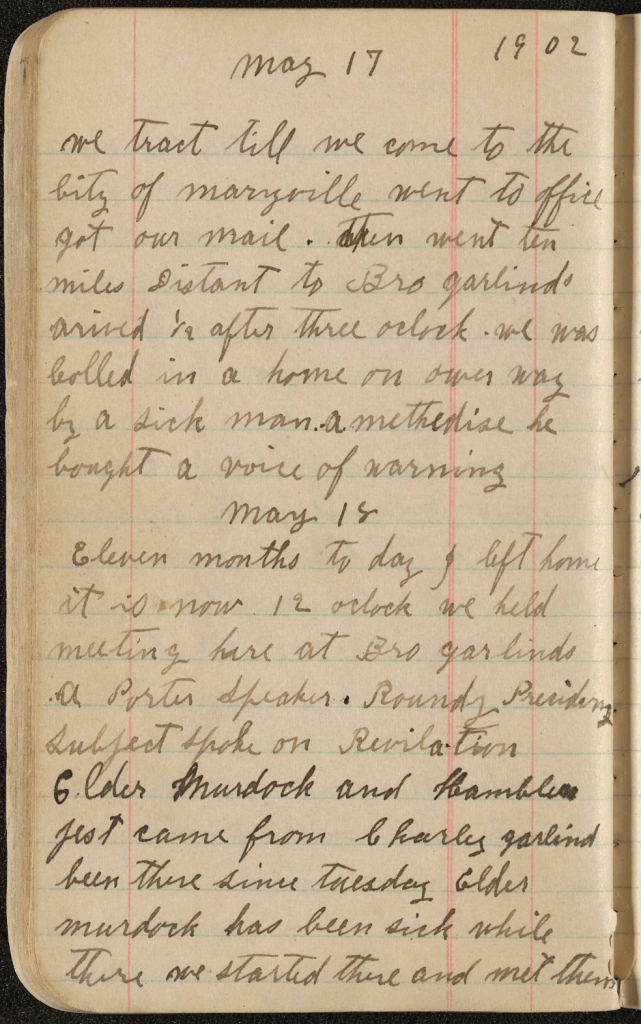 may 17 1902
we tract till we come to the
City of maryville went to office
got our mail. Then went ten
miles Distant to Bro garlinds
arived ½ after three oclock. we was
Colled in a home on ower way
by a sick man. a methedise he
bought a voice of warning
may 18
Eleven months to day I left home
it is now 12 oclock we held
meeting here at Bro garlinds
A Porter Speaker. Roundy Presiding.
Subject spoke on Revilation
Elder Murdock and Hamblen
jest came from Charley garlind
been there since tuesday Elder
murdock has been sick while
there we started there and met them